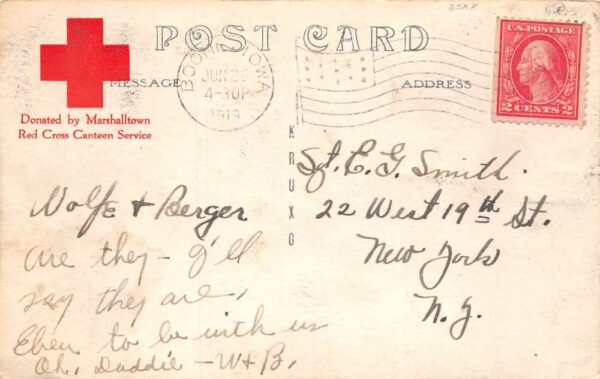 30XX
POST CARD
BOONE, IOWA
JUN 26
4-30P
1919
U.S. POSTAGE
2 CENTS 2
MESSAGE
ADDRESS
Donated by Marshalltown
Red Cross Canteen Service
KRUXO
Wolfe & Berger
are they - I'll
say they are,
to be with us
Oh, Daddie - W & B.
Sgt. E. G. Smith.
22 West 19th St.
New York
N. Y.